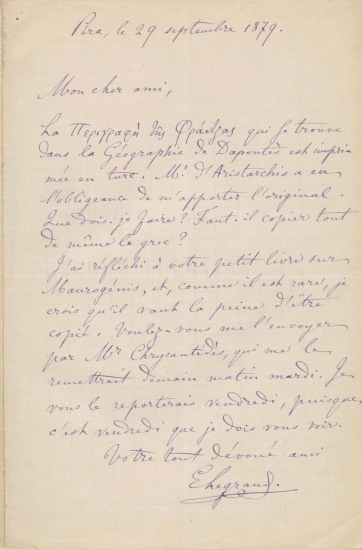 Péra, le 29 septembre 1879.
Mon cher ami,
La Περιγραφὴ τῆς Φράντζας qui se trouve
dans la Géographie de Dapontès est impri-
mée en turc. Mr d'Aristarchis a eu
l'obligeance de m'apporter l'original.
Que dois-je faire? Faut-il copier tout
de même le grec?
J'ai réfléchi à votre petit livre sur
Maurogénis, et, comme il est rare, je
crois qu'il vaut la peine d'être
copié. Voulez-vous me l'envoyer
par Mr Chrysantidès, qui me le
remettrait demain matin mardi. Je
vous le reporterais vendredi, puisque
c'est vendredi que je dois vous voir.
Votre tout dévoué ami
E Legrand.